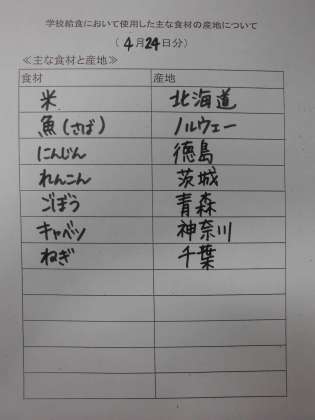 学校給食において使用した主な食材の産地について
(4月24日分)
≪主な食材と産地≫
食材 産地
米 北海道
魚(さば) ノルウェー
にんじん 徳島
れんこん 茨城
ごぼう 青森
キャベツ 神奈川
ねぎ 千葉